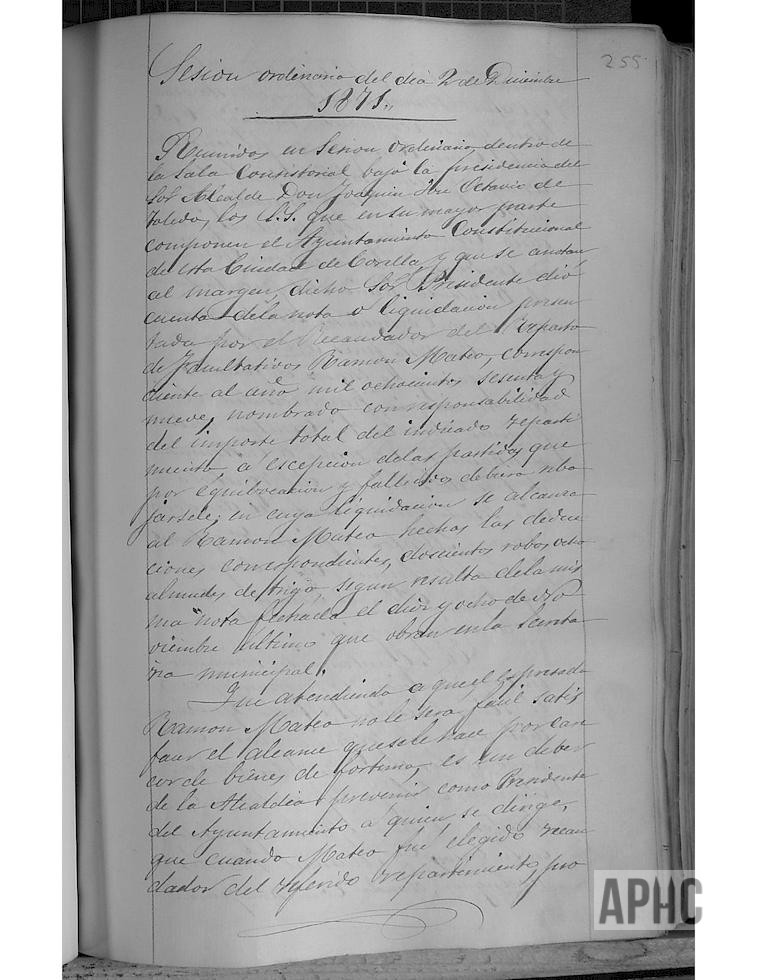 255
Sesion ordinaria del dia 2 de Diciembre
1871.
Reunidos en Sesion ordinaria, dentro de
la Sala Consistorial bajo la presidencia del
Sor Alcalde Don Joaquin Octavio de
Toledo, los S.S. que en su mayor parte
componen el Ayuntamiento Constitucional
de esta Ciudad de Corella y que se anotan
al margen, dicho Sor Presidente dió
cuenta dela nota o liquidacion presen
tada por el Recaudador del Reparto
de Facultativos Ramon Mateo, correspon
diente al año mil ochocientos sesenta y
nueve, nombrado con responsabilidad
del importe total del indicado reparti
miento, á escepcion delas partidas que
por equibocacion y fallidos debiera reba
jarsele; en cuya liquidacion se alcanza
al Ramon Mateo hechas las deduc
ciones correspondientes, doscientos robos ocho
almudes de trigo, segun resulta dela mis
ma nota fechada el diez y ocho de No
viembre último que obra en la Secreta
ria municipal.
Que atendiendo a que el espresado
Ramon Mateo no le sera facil satis
facer el alcance que sele hace por care
cer de bienes de fortuna, es un deber
de la Alcaldia prevenir como Presidente
del Ayuntamiento a quien se dirige,
que cuando Mateo fué elegido recau
dador del referido repartimiento, pro
APHC